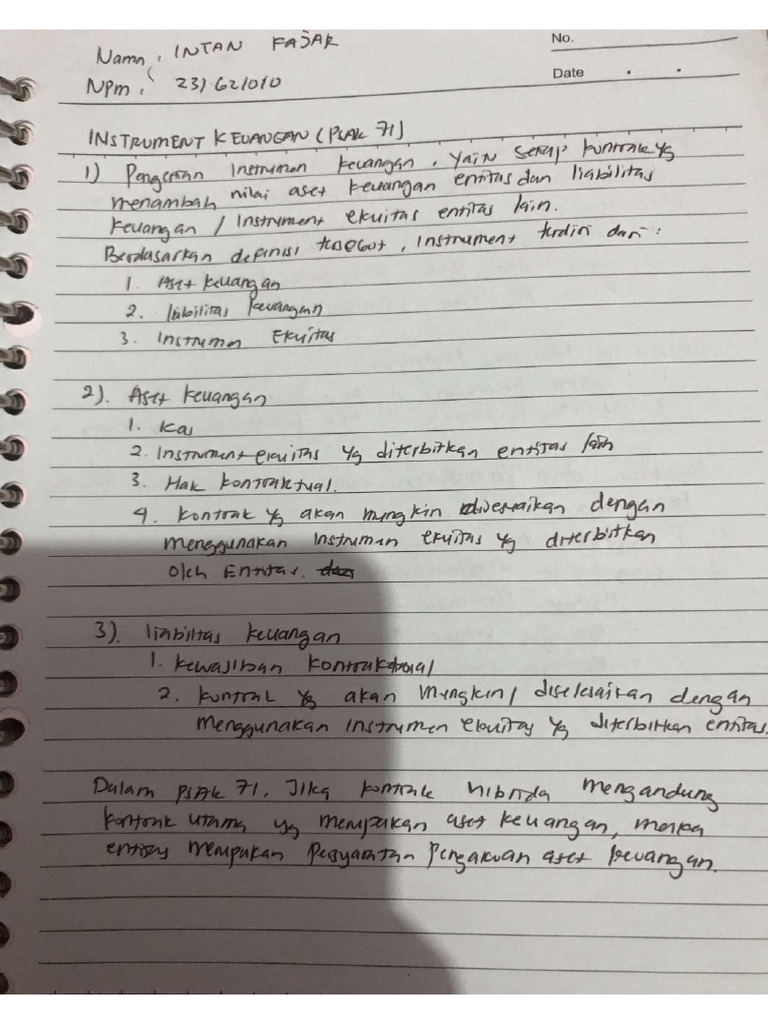 No.
Date
Nama : INTAN FAJAR
NPM : 231621010
INSTRUMENT KEUANGAN (PSAK 71)
1) Pengertian Instrumen keuangan, yain setiap kontrak yg
menambah nilai aset keuangan entitas dan liabilitas
keuangan / Instrument ekuitas entitas lain.
Berdasarkan definisi tersebut, Instrument terdiri dari :
1. Aset keuangan
2. liabilitas keuangan
3. Instrumen Ekuitas
2). Aset keuangan
1. Kas
2. Instrument ekuitas yg diterbitkan entitas lain
3. Hak kontraktual.
4. kontrak yg akan mungkin diselesaikan dengan
menggunakan instrumen ekuitas yg diterbitkan
oleh Entitas.
3). liabilitas keuangan
1. kewajiban kontraktual
2. kontrak yg akan mungkin / diselesaikan dengan
menggunakan instrumen ekuitas yg diterbitkan entitas.
Dalam PSAK 71, Jika kontrak hibrida mengandung
kontrak utama yg merupakan aset keuangan, maka
entitas merupakan persyaratan pengakuan aset keuangan.